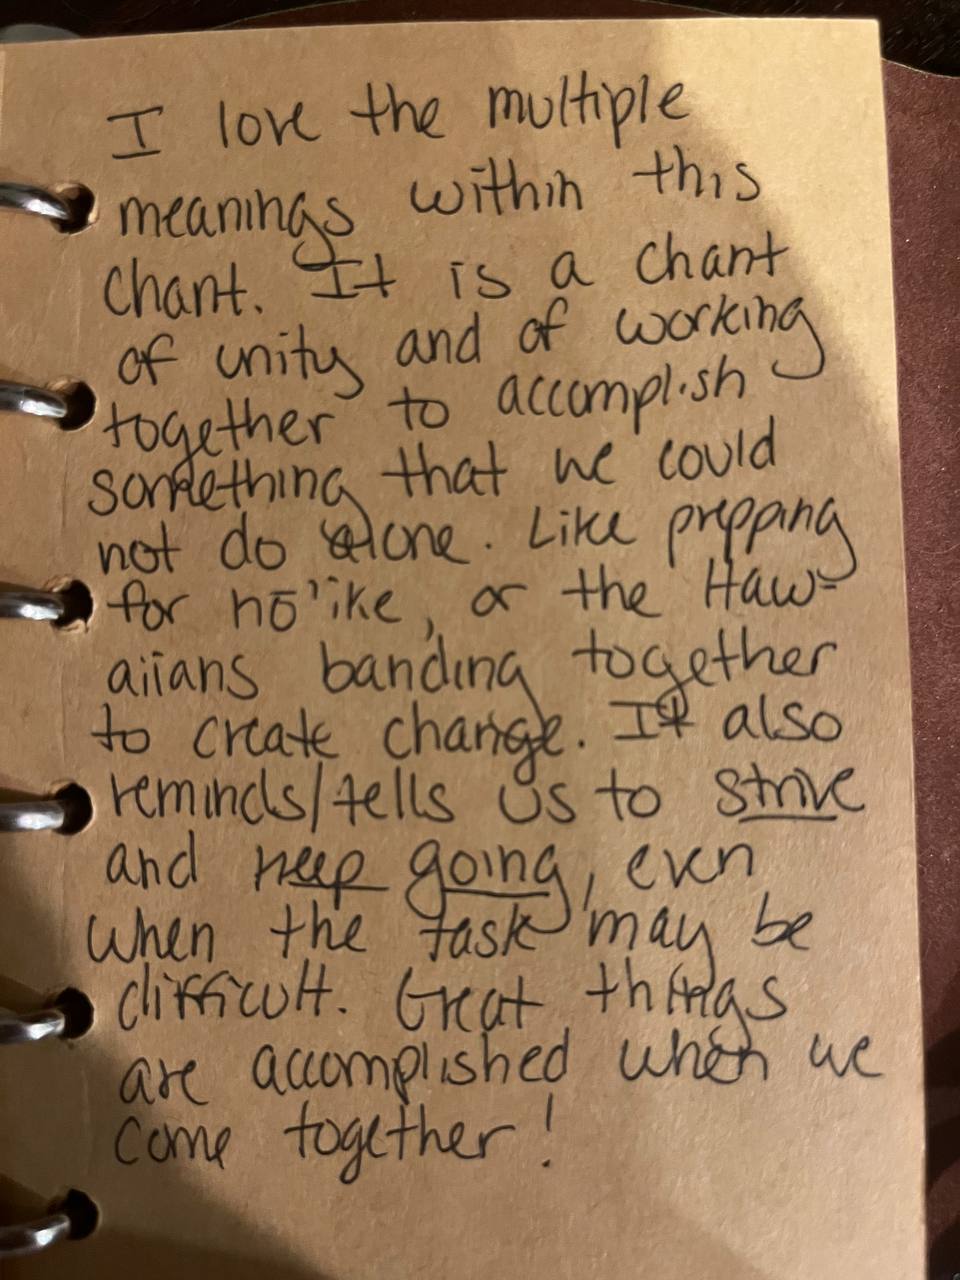 I love the multiple
meanings within this
chant. It is a chant
of unity and of working
together to accomplish
something that we could
not do alone. Like prepping
for nō'ike, or the Haw-
aiians banding together
to create change. It also
reminds/tells us to strive
and keep going, even
when the task may be
difficult. Great things
are accomplished when we
come together!